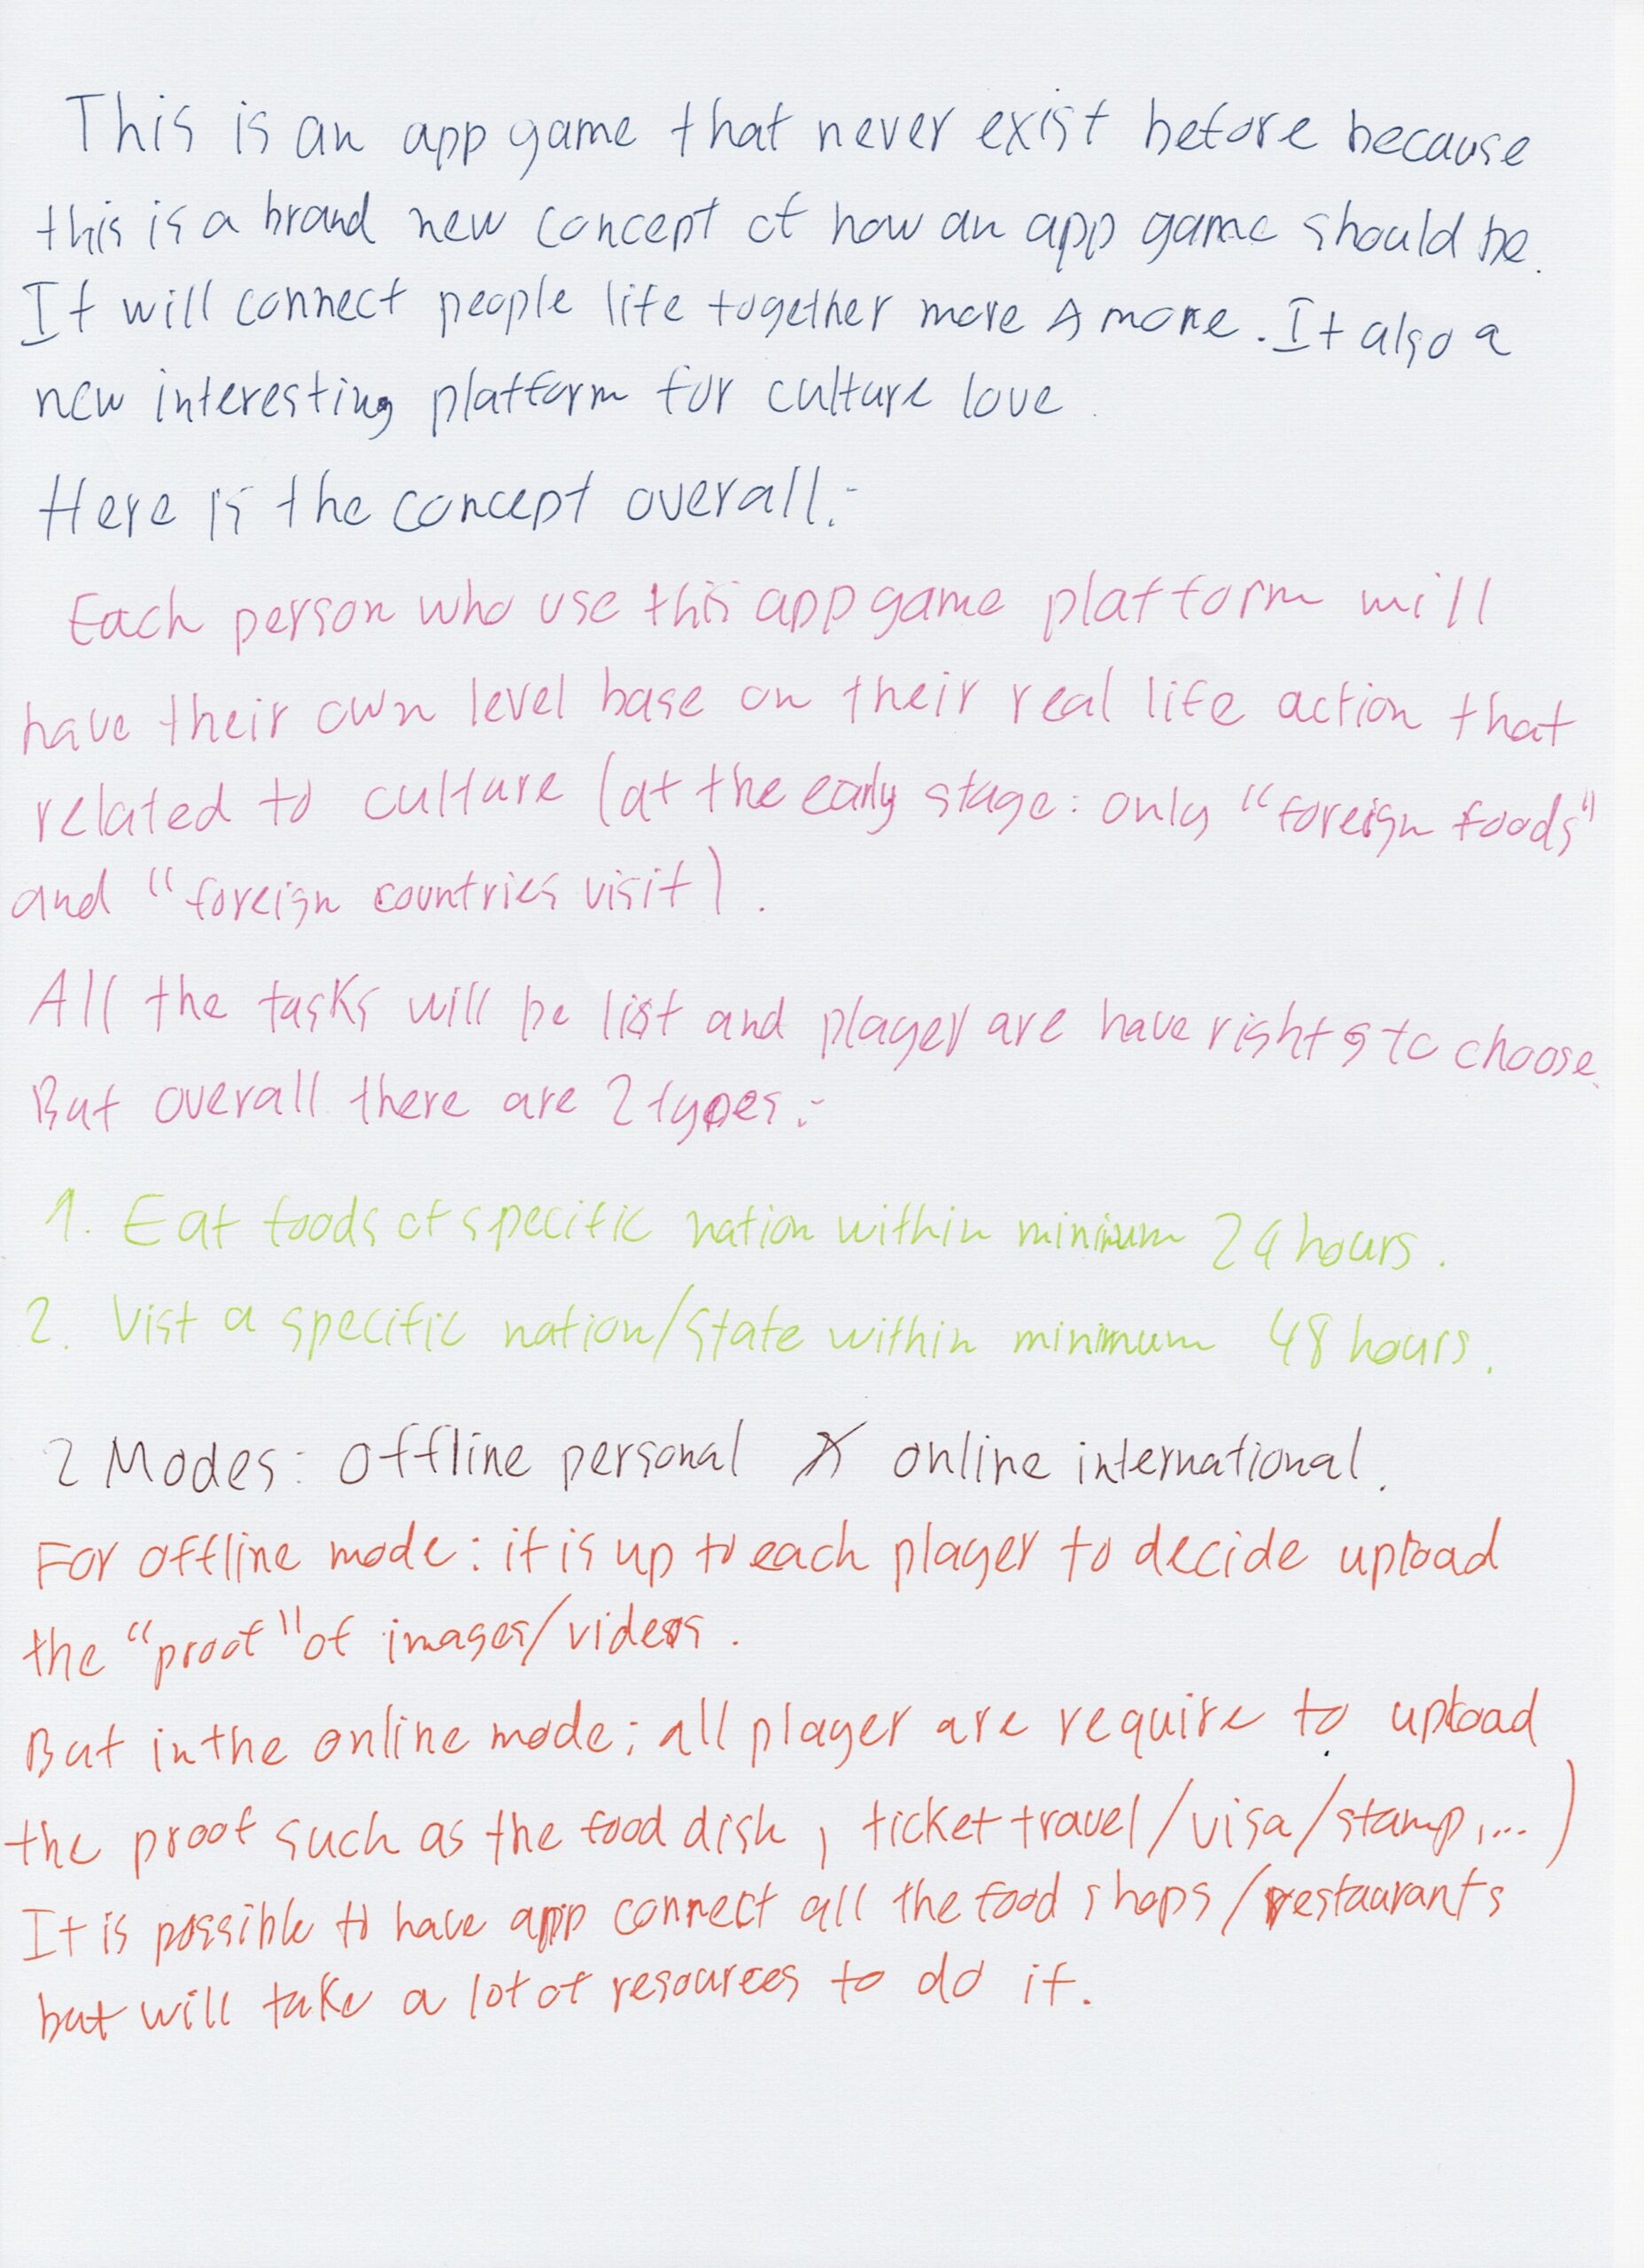 This is an app game that never exist before because
this is a brand new concept of how an app game should be.
It will connect people life together more & more. It also a
new interesting platform for culture love.
Here is the concept overall:-
Each person who use this app game platform will
have their own level base on their real life action that
related to culture (at the early stage: only "foreign foods"
and "foreign countries visit).
All the tasks will be list and player are have rights to choose.
But overall there are 2 types:-
1. Eat foods of specific nation within minimum 24 hours.
2. Vist a specific nation/state within minimum 48 hours.
2 Modes: Offline personal & online international.
For offline mode: it is up to each player to decide upload
the "proof" of images/videos.
But in the online mode; all player are require to upload
the proof such as the food dish, ticket travel/visa/stamp,...)
It is possible to have app connect all the food shops/restaurants
but will take a lot of resources to do it.